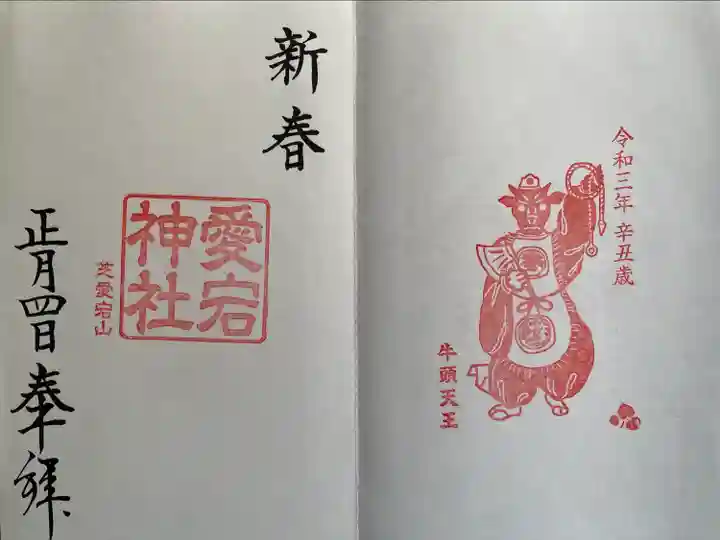 令和三年 辛丑歳
牛頭天王
新春
愛宕
神社
芝愛宕山
正月四日奉拝